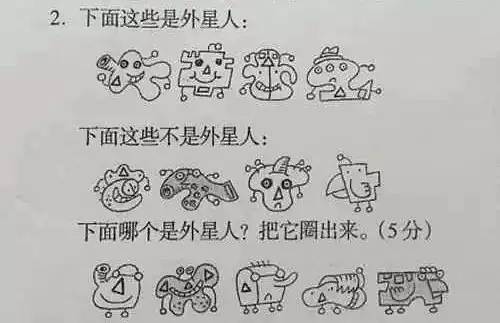 2. 下面这些是外星人：
下面这些不是外星人：
下面哪个是外星人？把它圈出来。(5分)